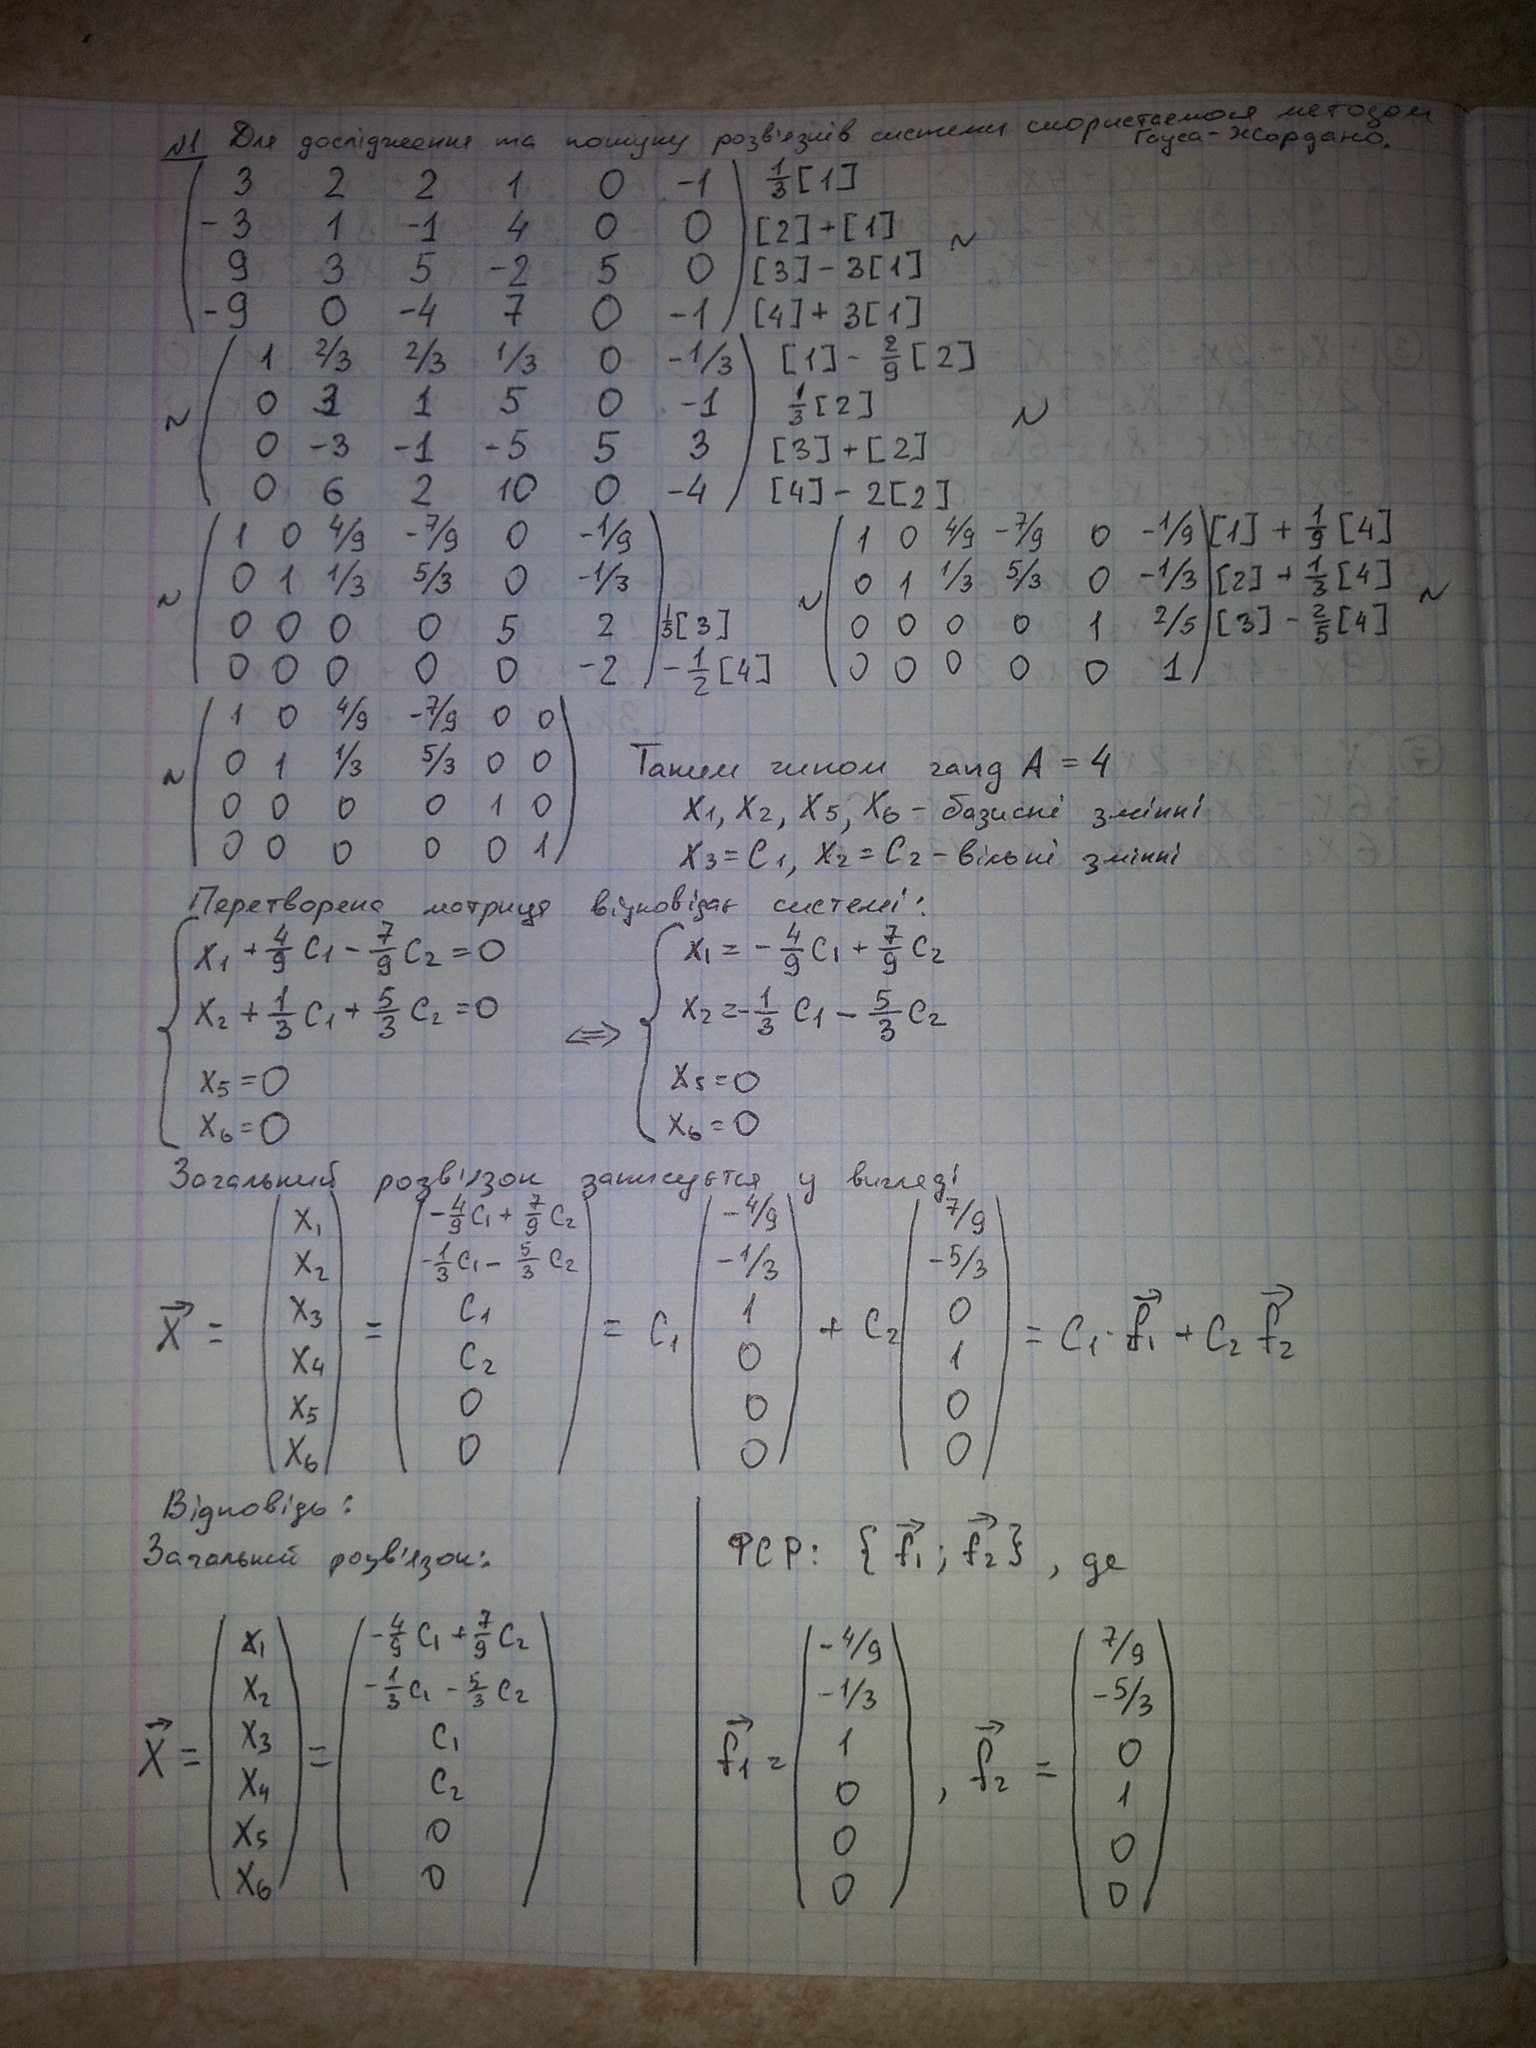 №1 Для дослідження та пошуку розв'язків системи скористаємося методом
Гауса-Жордано.
3 2 2 1 0 -1 | 1/3[1]
-3 1 -1 4 0 0 | [2]+[1] ~
9 3 5 -2 5 0 | [3]-3[1]
-9 0 -4 7 0 -1 | [4]+3[1]
1 2/3 2/3 1/3 0 -1/3 | [1]-2/9[2]
~ 0 3 1 5 0 -1 | 1/3[2] ~
0 -3 -1 -5 5 3 | [3]+[2]
0 6 2 10 0 -4 | [4]-2[2]
1 0 4/9 -7/9 0 -1/9
~ 0 1 1/3 5/3 0 -1/3
0 0 0 0 5 2 | 1/5[3]
0 0 0 0 0 -2 | -1/2[4]
1 0 4/9 -7/9 0 -1/9 | [1]+1/9[4]
~ 0 1 1/3 5/3 0 -1/3 | [2]+1/3[4] ~
0 0 0 0 1 2/5 | [3]-2/5[4]
0 0 0 0 0 1
1 0 4/9 -7/9 0 0
~ 0 1 1/3 5/3 0 0
0 0 0 0 1 0
0 0 0 0 0 1
Таким чином rang A = 4
X1, X2, X5, X6 - базисні змінні
X3=C1, X2=C2 - вільні змінні
Перетворена матриця відповідає системі:
X1 + 4/9 C1 - 7/9 C2 = 0
X2 + 1/3 C1 + 5/3 C2 = 0
X5=0
X6=0
⟺
X1 = -4/9 C1 + 7/9 C2
X2 = -1/3 C1 - 5/3 C2
X5=0
X6=0
Загальний розв'язок записується у вигляді
X⃗ = (X1 X2 X3 X4 X5 X6) = (-4/9 C1 + 7/9 C2, -1/3 C1 - 5/3 C2, C1, C2, 0, 0) = C1 (-4/9, -1/3, 1, 0, 0, 0) + C2 (7/9, -5/3, 0, 1, 0, 0) = C1·f⃗1 + C2 f⃗2
Відповідь:
Загальний розв'язок:
X⃗ = (X1 X2 X3 X4 X5 X6) = (-4/9 C1 + 7/9 C2, -1/3 C1 - 5/3 C2, C1, C2, 0, 0)
ФСР: {f⃗1; f⃗2}, де
f⃗1 = (-4/9, -1/3, 1, 0, 0, 0), f⃗2 = (7/9, -5/3, 0, 1, 0, 0)